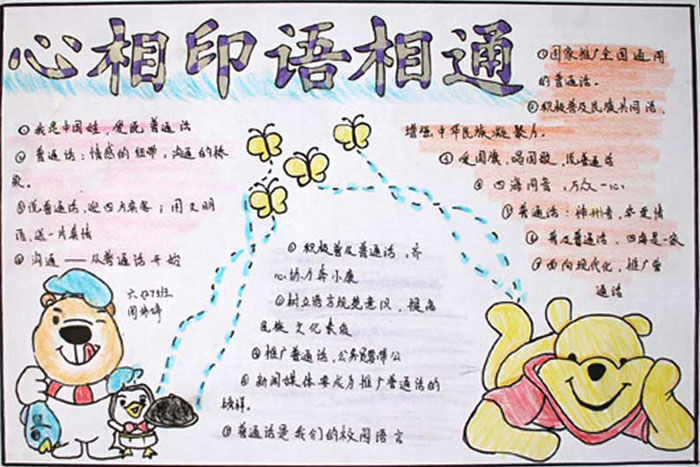 心相印语相通
①我是中国娃,爱说普通话
②普通话:情感的纽带,沟通的桥
梁。
③说普通话,迎四方宾客;用文明
语,送一片真情
④沟通——从普通话开始
①积极普及普通话,齐
心协力奔小康
②树立语言规范意识,提高
民族文化素质
③推广普通话,公务员要带
④新闻媒体要成为推广普通话的
榜样。
⑤普通话是我们的校园语言
①国家推广全国通用
的普通话。
②积极普及民族共同语,
增强中华民族凝聚力。
④爱国旗,唱国歌,说普通话
四海同音,万众一心
普通话:神州音,华夏情
普及普通话,四海是一家
面向现代化,推广普
通话